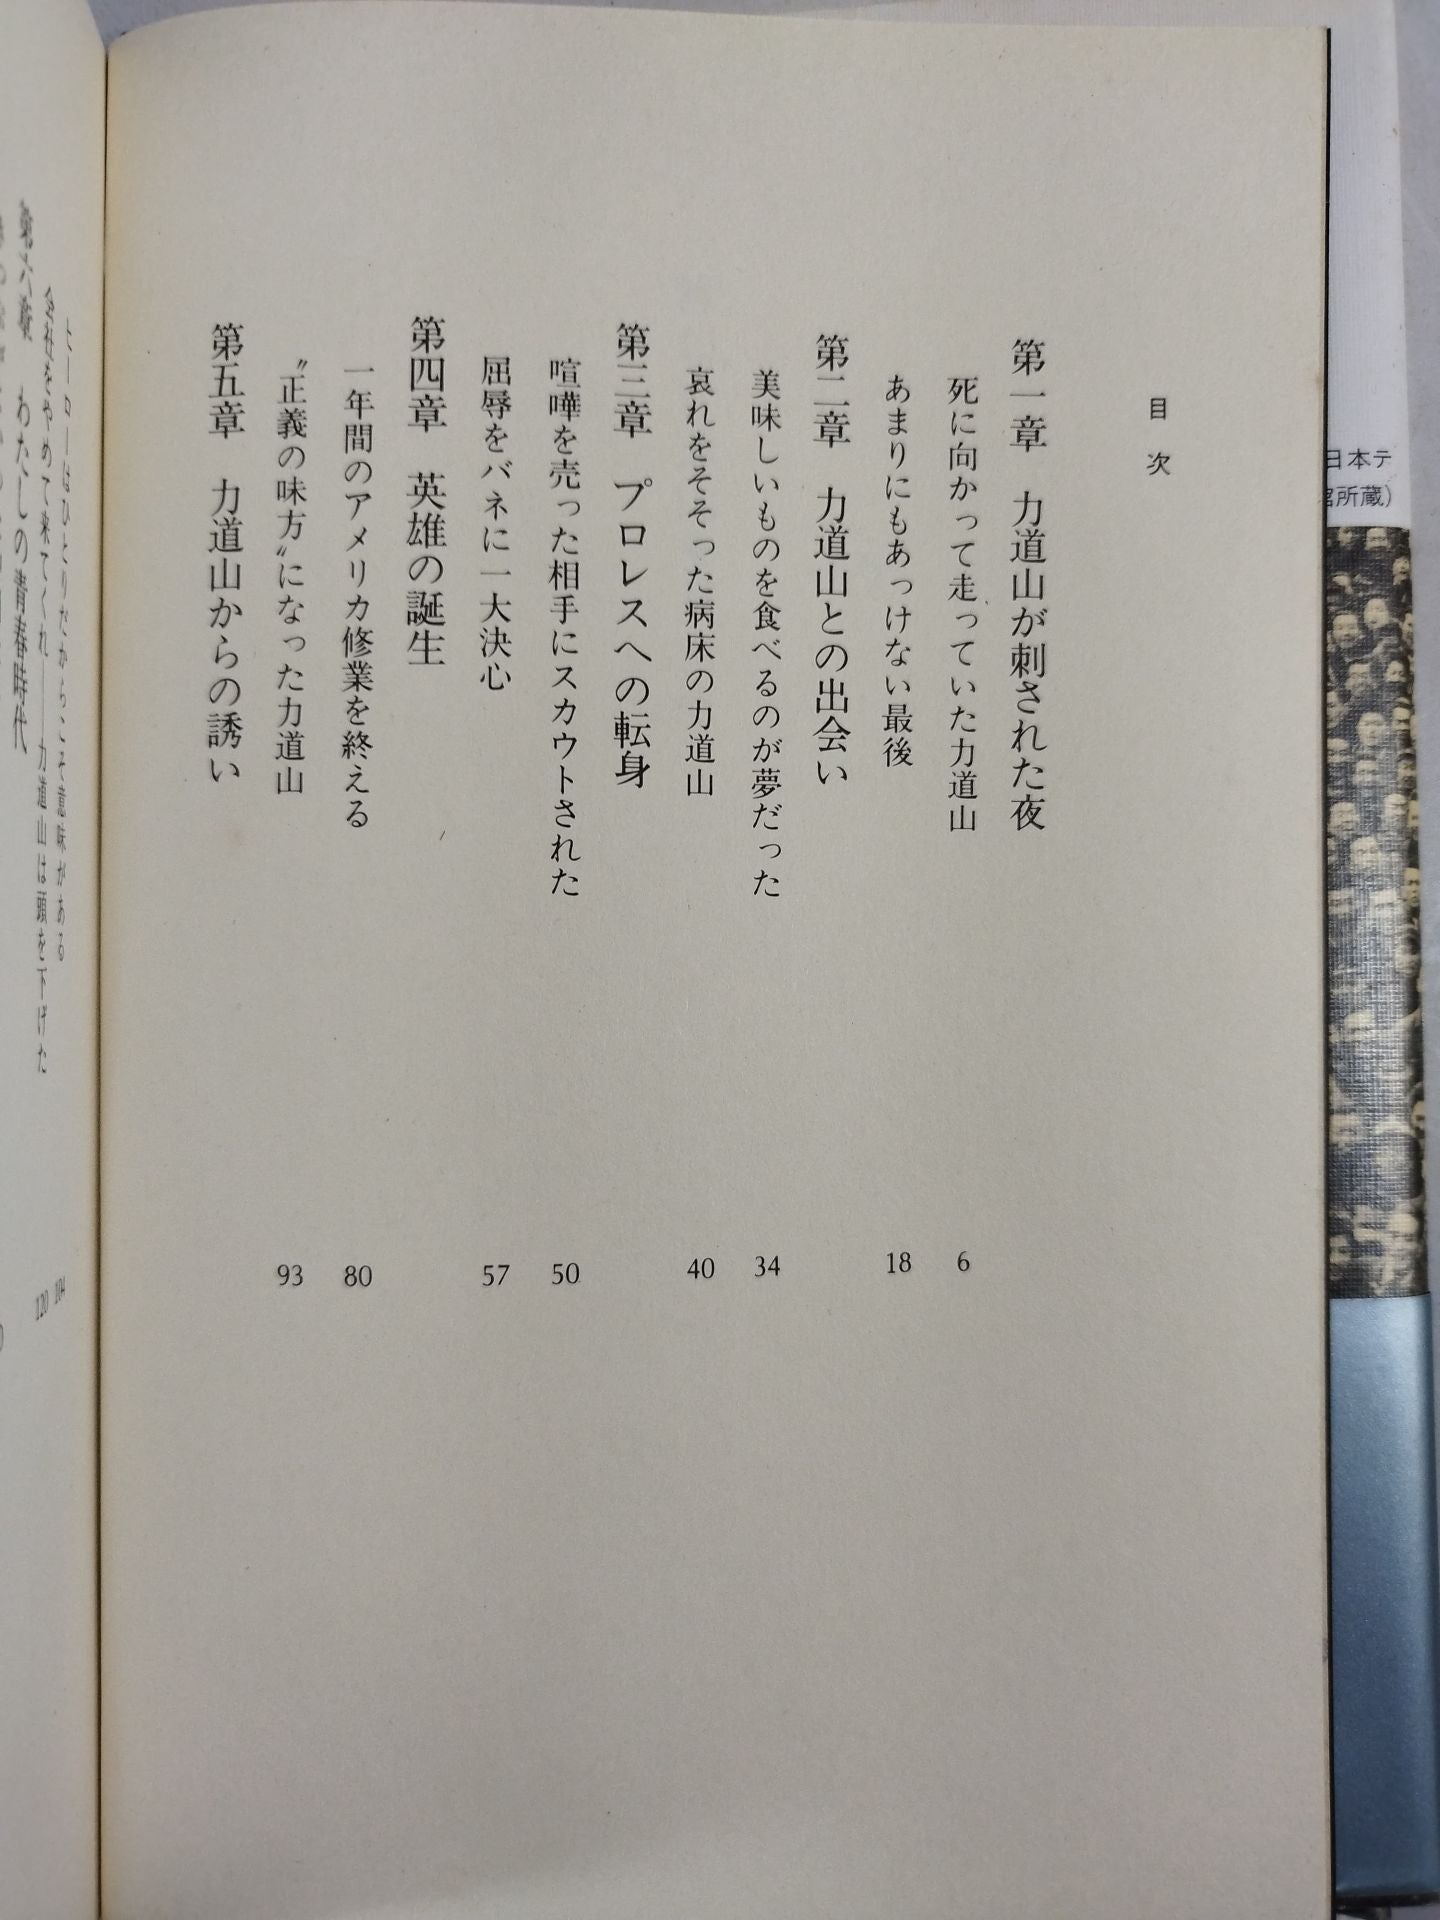 日本テ
館所蔵)
目次
第一章　力道山が刺された夜
死に向かって走っていた力道山　6
あまりにもあっけない最後　18
第二章　力道山との出会い
美味しいものを食べるのが夢だった　34
哀れをそそった病床の力道山　40
第三章　プロレスへの転身
喧嘩を売った相手にスカウトされた　50
屈辱をバネに一大決心　57
第四章　英雄の誕生
一年間のアメリカ修業を終える　80
〝正義の味方〟になった力道山　93
第五章　力道山からの誘い
ヒーローはひとりだからこそ意味がある　104
会社をやめて来てくれ――力道山は頭を下げた　120
第六章　わたしの青春時代